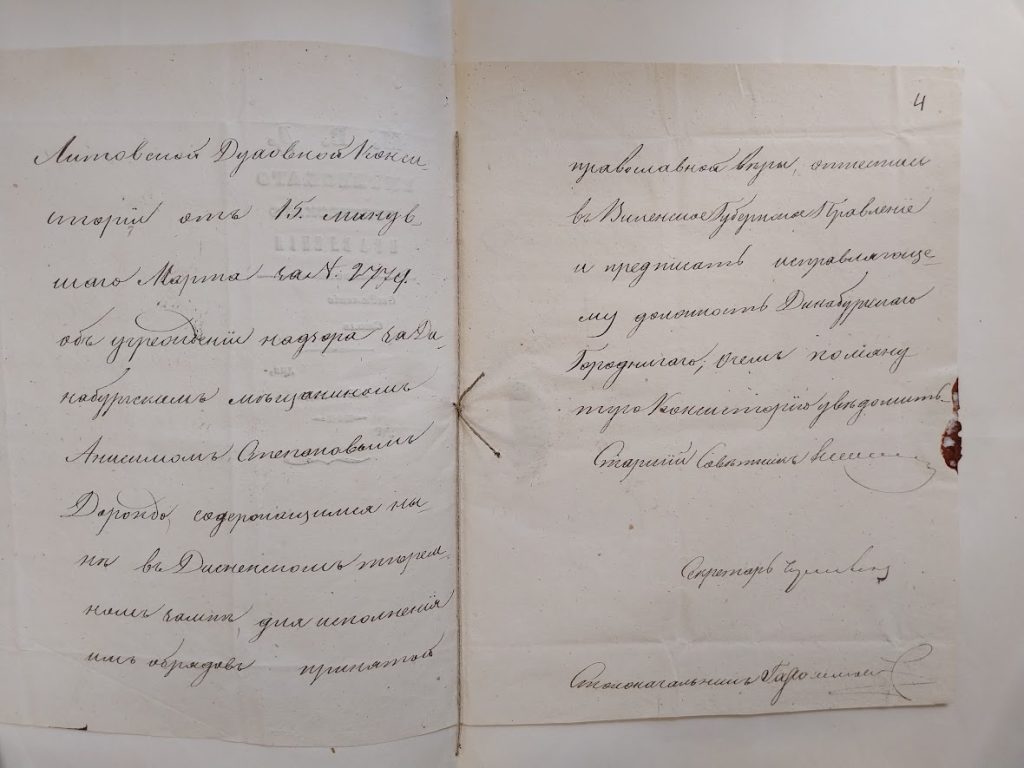 Литовской Духовной Конси
сторіи отъ 15. минув-
шаго Марта за №. 2779.
объ учрежденіи надзора за Ди-
набургскимъ мѣщаниномъ
Анисимомъ Степановымъ
Дорондо, содержащимся ны
нѣ въ Дисненскомъ тюрем-
номъ замкѣ для исполненія
имъ обрядовъ принятой
4
православной вѣры,
въ Виленское Губернское Правленіе
и предписать исправляюще-
му должность Динабургскаго
Городничаго; о чемъ команд
тую Консисторію увѣдомить.
Старшій Совѣтникъ
Секретарь
Столоначальникъ